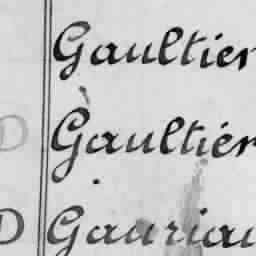 Gaultier
D Gaultier
D Gauriau